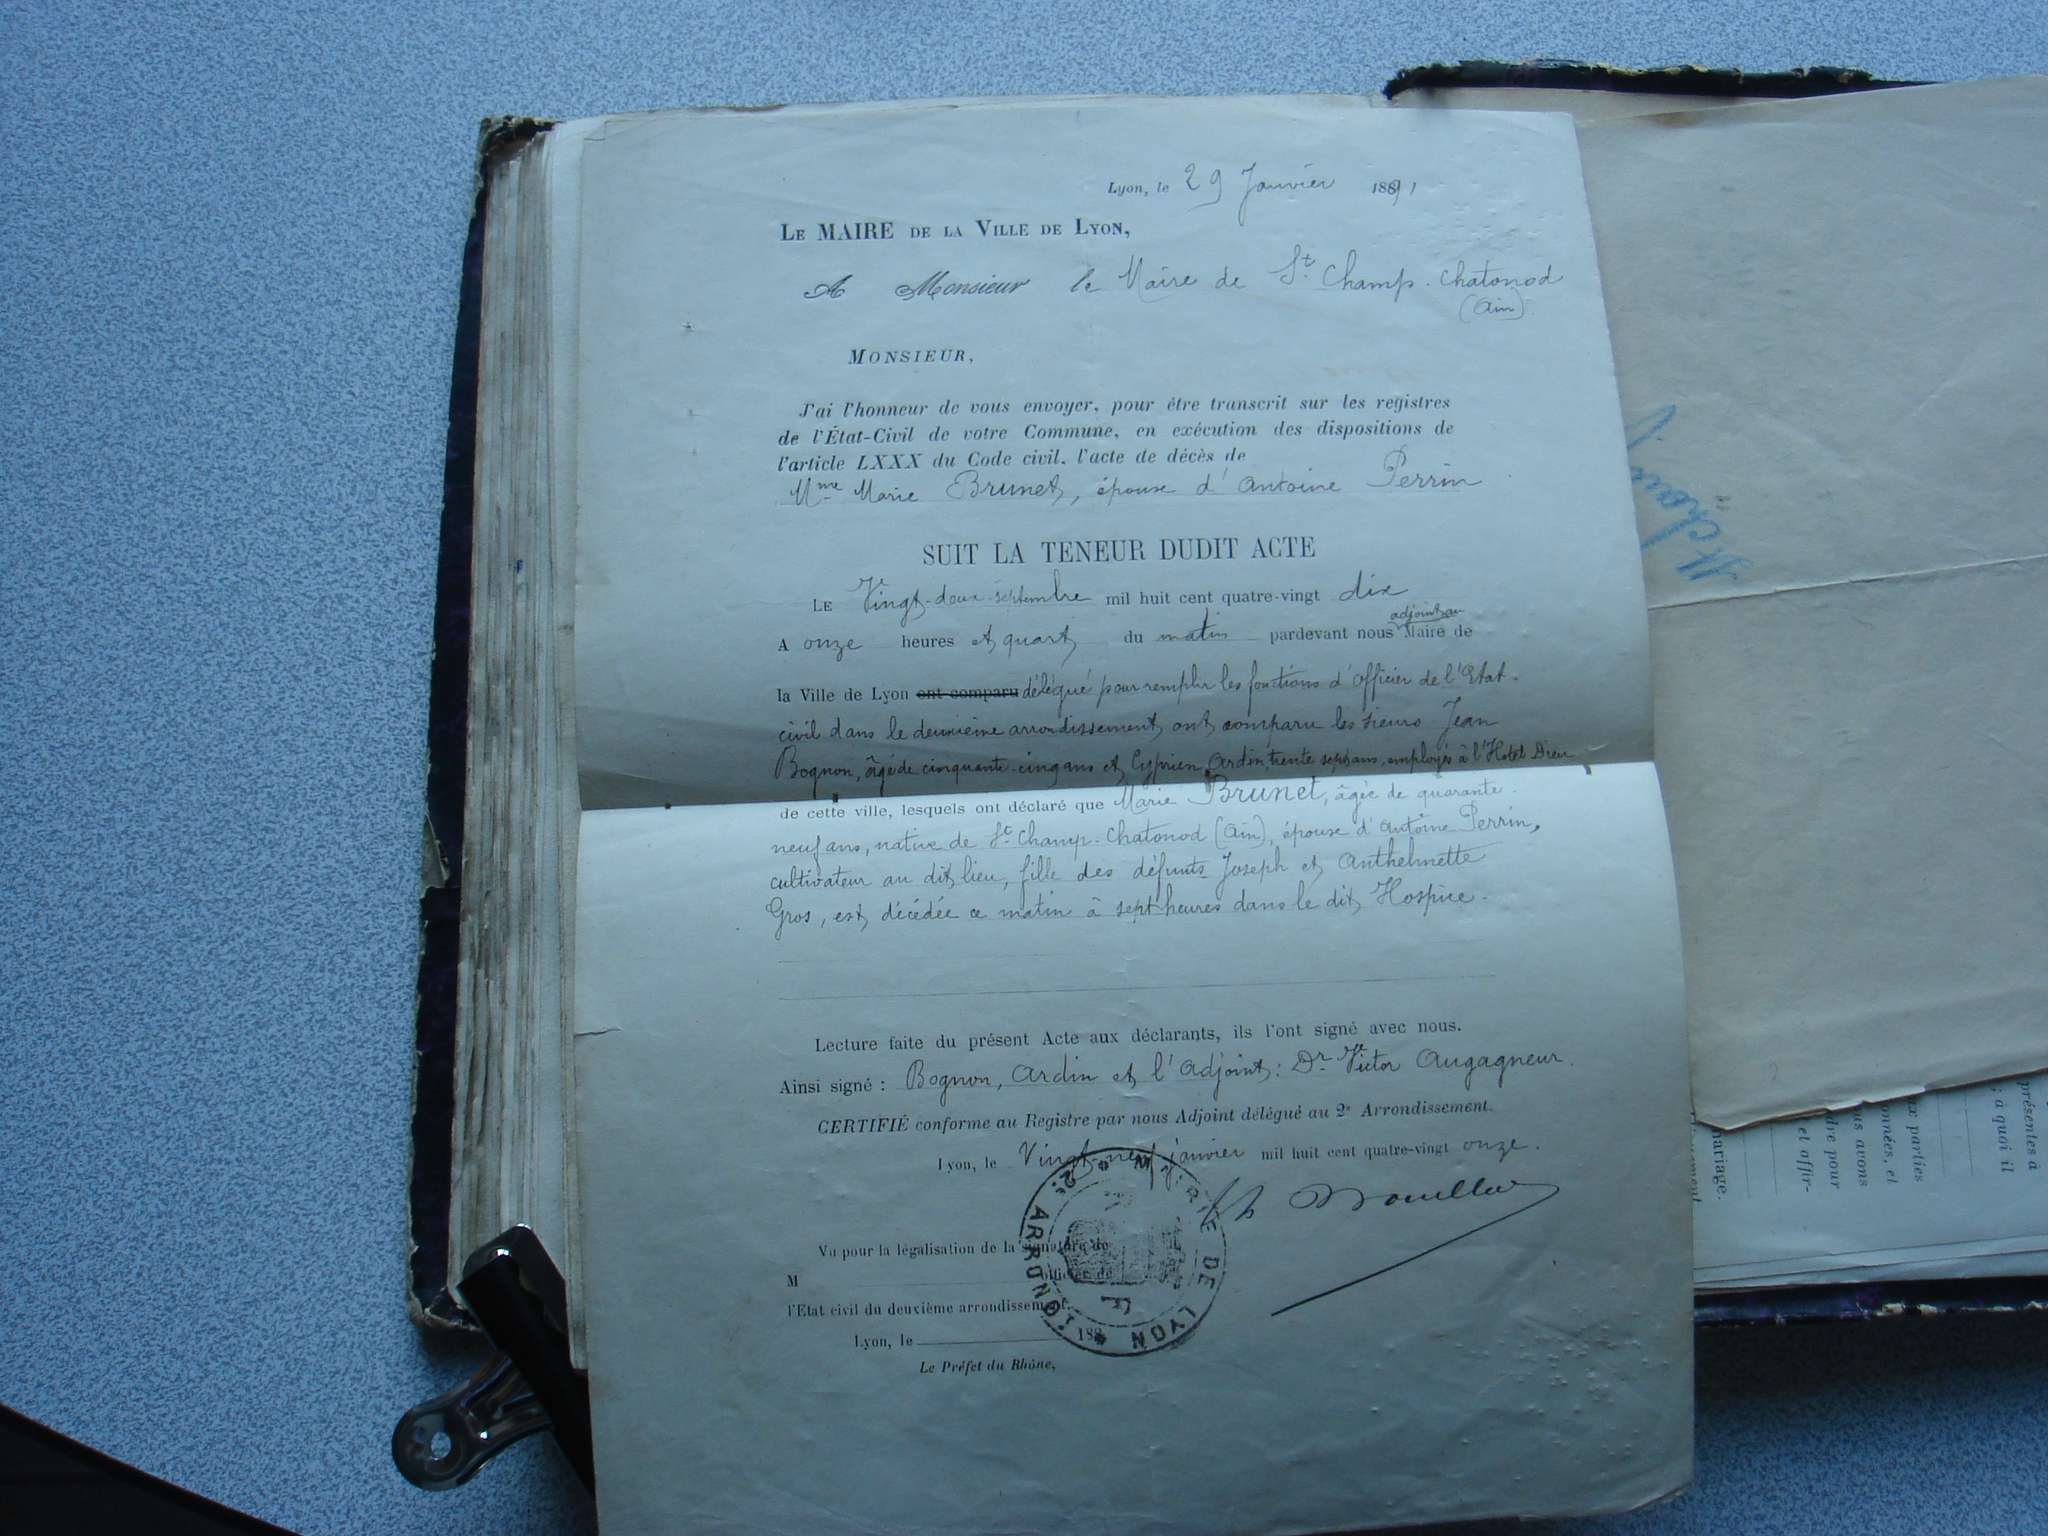 Lyon, le 29 Janvier 1891
LE MAIRE DE LA VILLE DE LYON,
A Monsieur le Maire de St. Champ-Chatonod
(Ain).
MONSIEUR,
J'ai l'honneur de vous envoyer, pour être transcrit sur les registres
de l'État-Civil de votre Commune, en exécution des dispositions de
l'article LXXX du Code civil, l'acte de décès de
Mme Marie Brunet, épouse d'Antoine Perrin
SUIT LA TENEUR DUDIT ACTE
LE Vingt-deux septembre mil huit cent quatre-vingt dix
adjoint au
A onze heures et quart du matin pardevant nous Maire de
la Ville de Lyon ont comparu délégué pour remplir les fonctions d'officier de l'Etat-
civil dans le deuxième arrondissement, ont comparu les sieurs Jean
Bognon, âgé de cinquante-cinq ans et Cyprien Ardin, trente sept ans, employés à l'Hotel Dieu
de cette ville, lesquels ont déclaré que Marie Brunet, âgée de quarante-
neuf ans, native de St. Champ-Chatonod (Ain), épouse d'Antoine Perrin,
cultivateur au dit lieu, fille des défunts Joseph et Anthelmette
Gros, est décédée ce matin à sept heures dans le dit Hospice.
Lecture faite du présent Acte aux déclarants, ils l'ont signé avec nous.
Ainsi signé : Bognon, Ardin et l'Adjoint: Dr. Victor Augagneur.
CERTIFIÉ conforme au Registre par nous Adjoint délégué au 2e Arrondissement.
Lyon, le Vingt-neuf janvier mil huit cent quatre-vingt onze.
MAIRIE DE LYON * 2e ARRONDt. *
Vu pour la légalisation de la signature de
M officier de
l'Etat civil du deuxième arrondissement.
Lyon, le 188
Le Préfet du Rhône,
présentes à
; à quoi il
ux parties
onnées, et
ous avons
dre pour
et affir-
mariage.